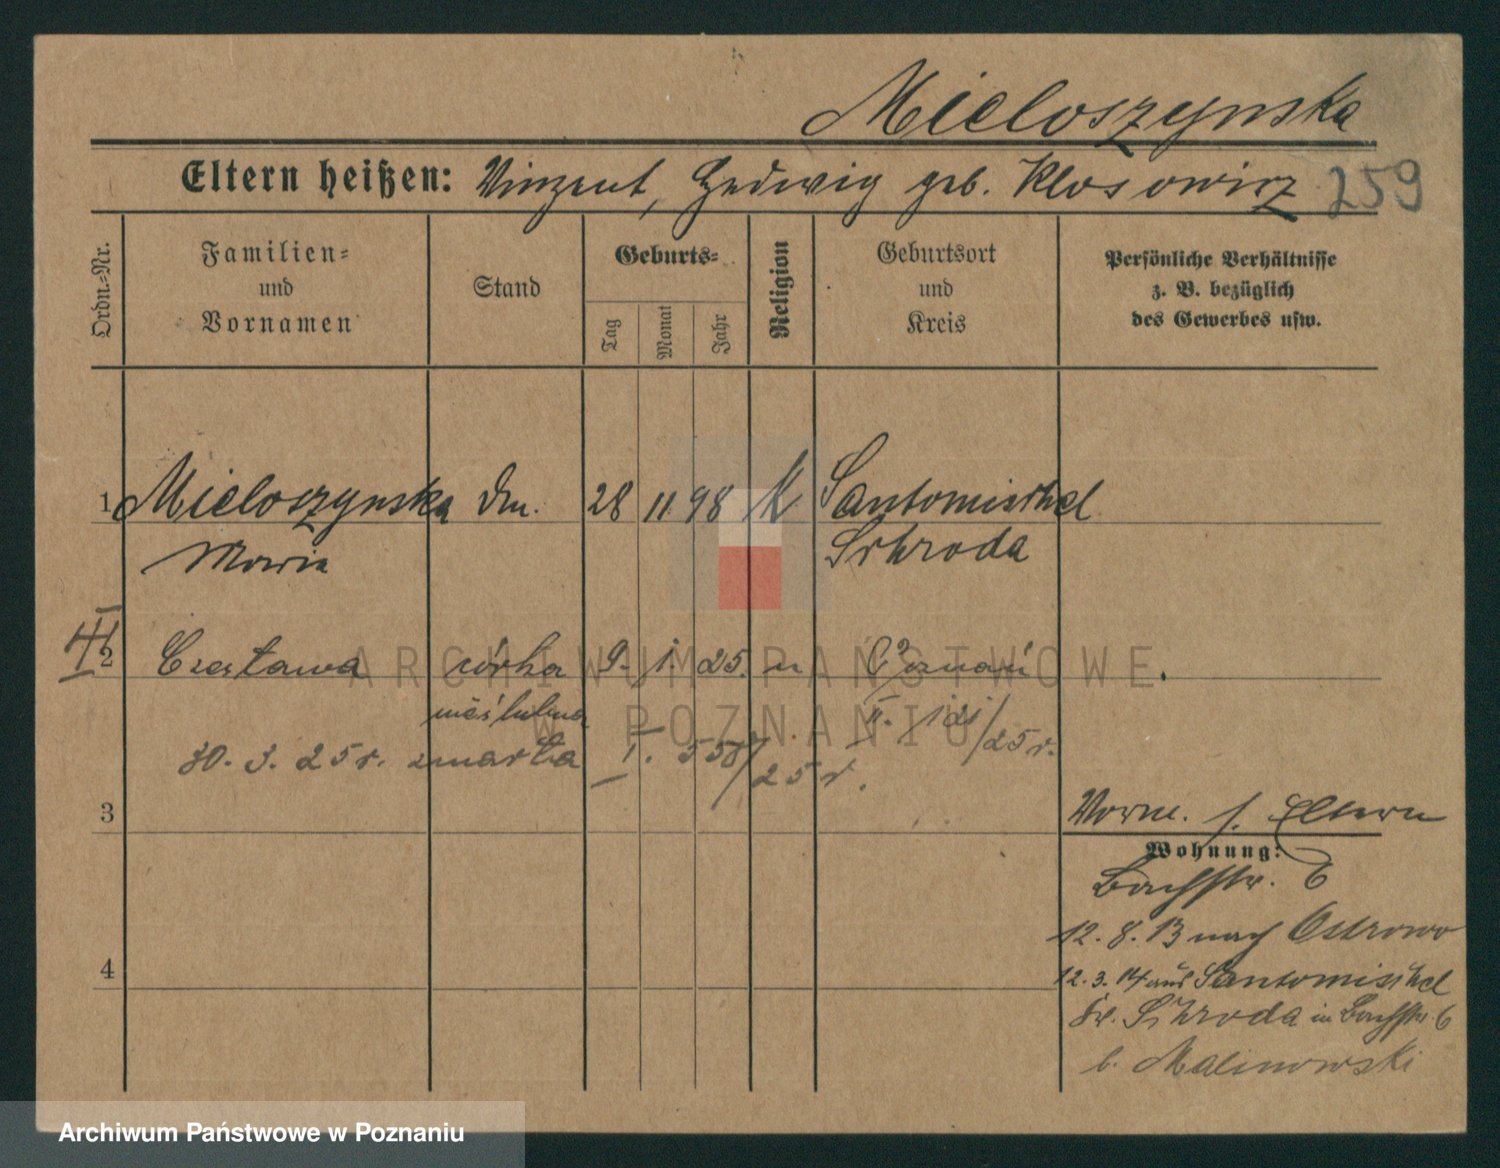 Mieloszynska
Eltern heißen: Vinzent, Hedwig geb. Klosowicz 259
Ordn.-Nr.
Familien-
und
Vornamen
Stand
Geburts-
Tag
Monat
Jahr
Religion
Geburtsort
und
Kreis
Persönliche Verhältnisse
z. B. bezüglich
des Gewerbes usw.
1 Mieloszynska 28 11 98 K Santomischel
Maria Schroda
2 Czesława córka 9. 1. 25. Poznań
nieślubna II. 25 r.
30. 3. 25 r. zmarła I. 25 r.
3
Vorm. s. Eltern
Wohnung:
Bachstr. 6
12. 8. 13 nach Ostrowo
4
12. 3. 14 aus Santomischel
Kr. Schroda in Bachstr. 6
b. Malinowski
ARCHIWUM PAŃSTWOWE
W POZNANIU
Archiwum Państwowe w Poznaniu